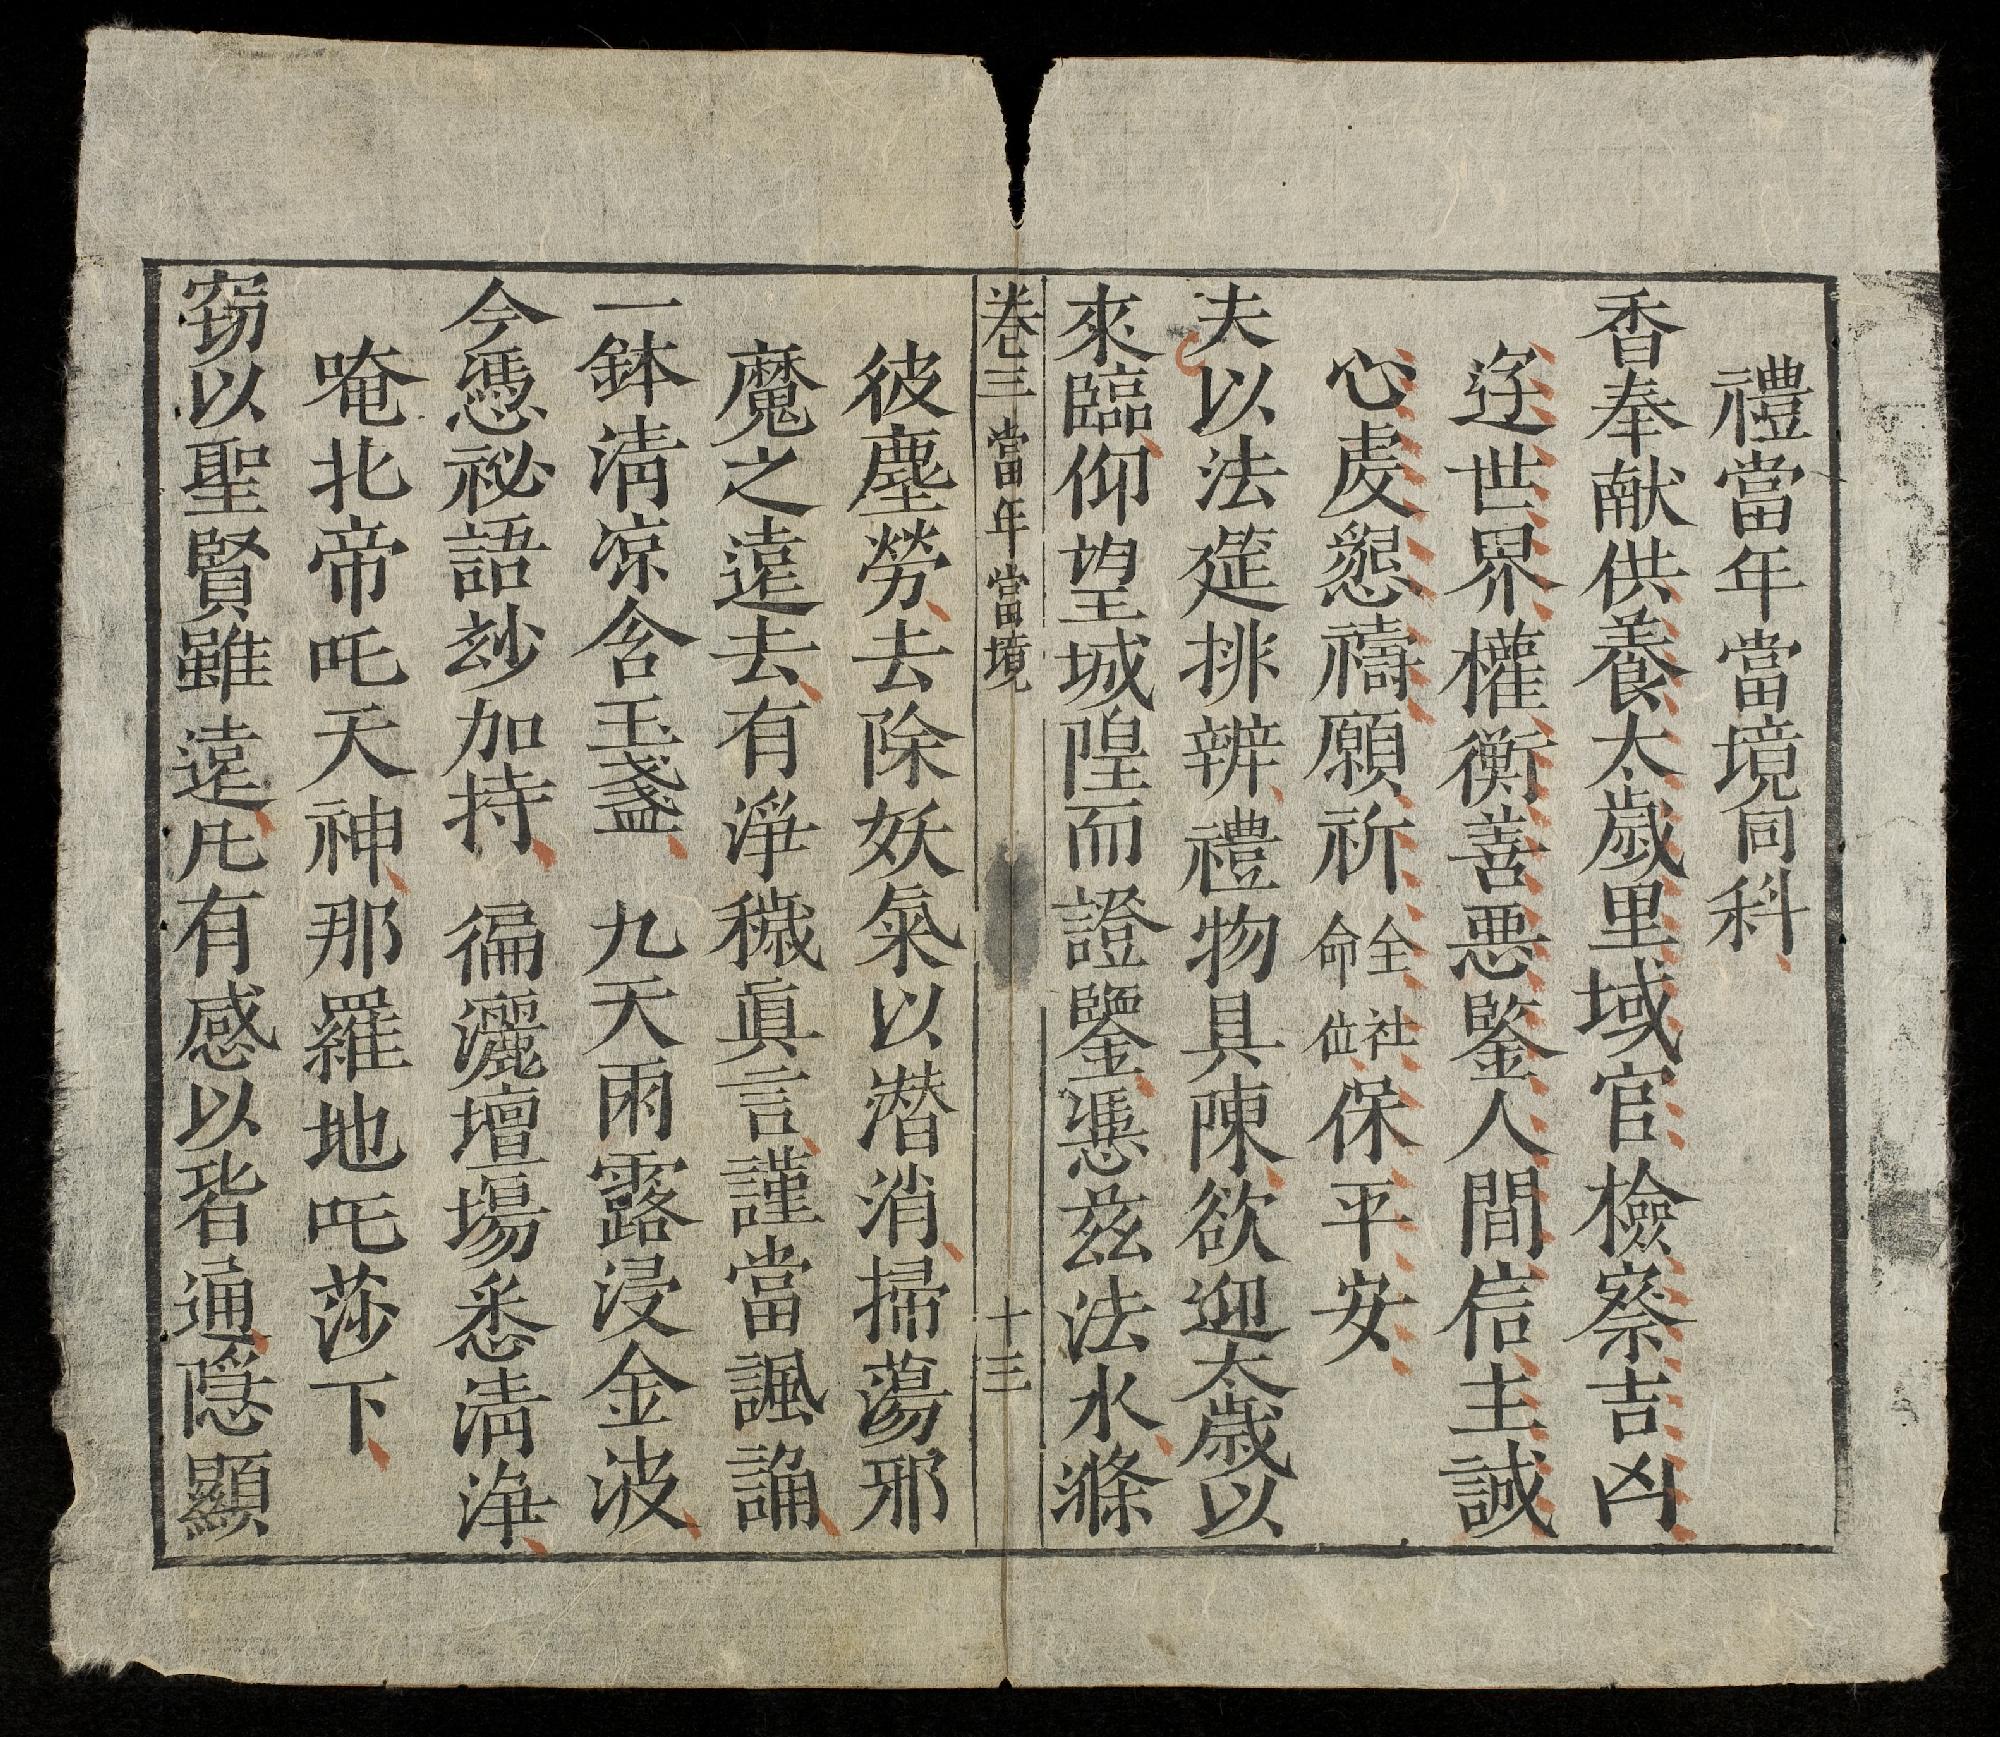 禮當年當境同科
香奉献供養太歲里域官檢察吉凶
迳世界權衡善悪鑒人間信主誠
心䖍懇禱願祈全命社位保平安
夫以法筵排辨禮物具陳欲迎太歲以
來臨仰望城隍而證鑒憑兹法水滌
卷三 當年當境 十三
彼塵勞去除妖氣以潜消掃蕩邪
魔之遠去有淨穢眞言謹當諷誦
一鉢清凉含玉盞 九天雨露浸金波
今憑祕語玅加持 徧灑壇場悉清淨
唵北帝吒天神那羅地吒莎下
窃以聖賢雖遠凡有感以皆通隠顯